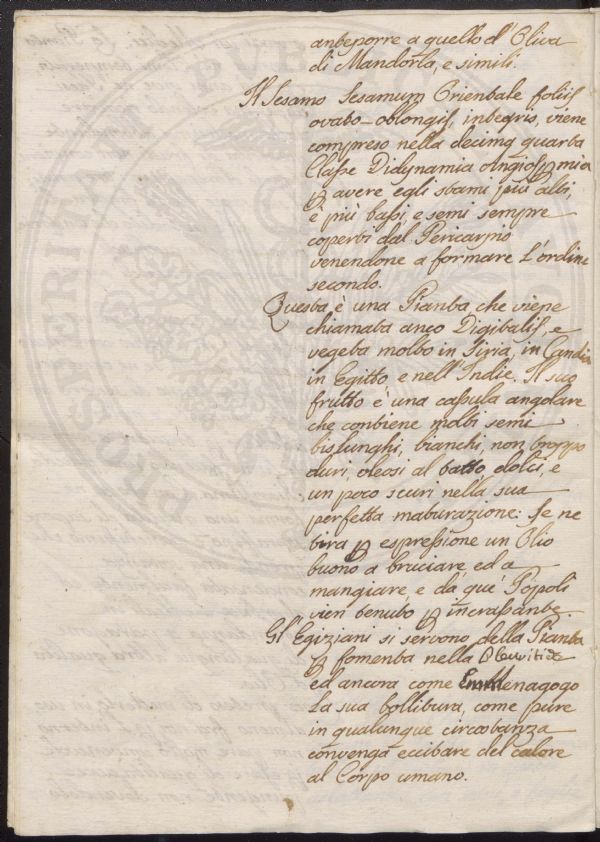 anteporre a quello d'Oliva
di Mandorla, e simili.
Il Sesamo Sesamum Orientale foliis
ovato-oblongis, integris, viene
compreso nella decima quarta
Classe Didynamia Angiospermia
p avere egli stami più alti,
e più bassi, e semi sempre
coperti dal Pericarpio
venendone a formare L'ordine
secondo.
Questa è una Pianta che viene
chiamata anco Digitalis, e
vegeta molto in Siria, in Candia
in Egitto, e nell'Indie. Il suo
frutto è una cassula angolare
che contiene molti semi
bislunghi, bianchi, non troppo
duri, oleosi al tatto, dolci, e
un poco scuri nella sua
perfetta maturazione: Se ne
tira p espressione un Olio
buono a bruciare, ed a
mangiare, e da que' Popoli
vien tenuto p incrassante.
Gl'Egiziani si servono della Pianta
p fomenta nella Pleuritide
ed ancora come Emmenagogo
La sua bollitura, come pure
in qualunque circostanza
convenga eccitare del calore
al Corpo umano.